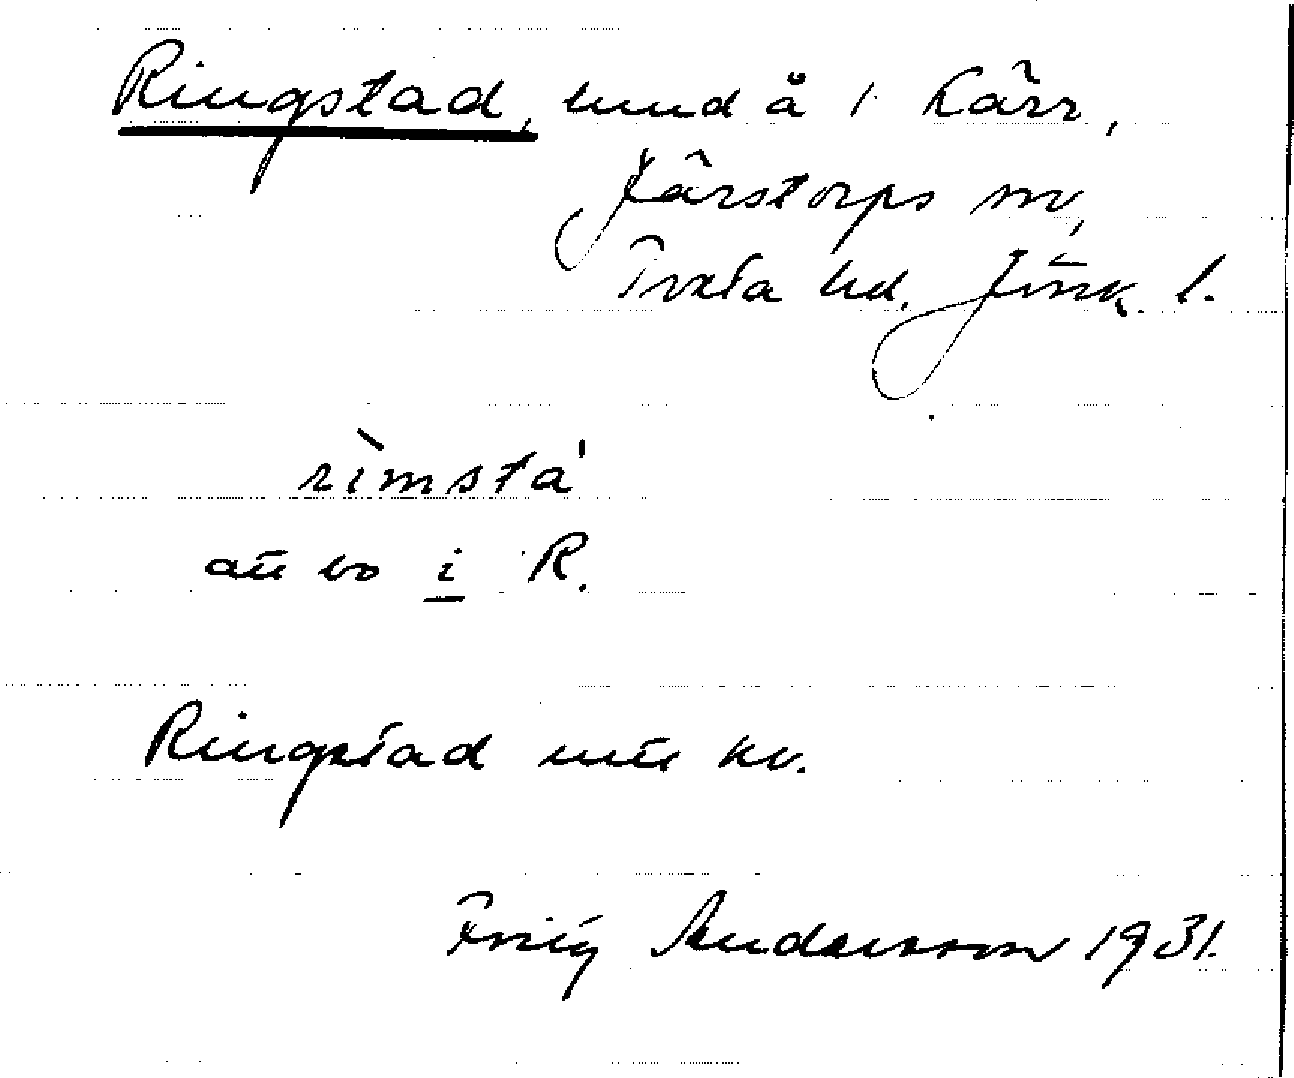 Ringstad, und å i Kärr,
Järstorps sn,
Tveta hd, Jönk. l.
rìmstá
att bo i R.
Ringstad utt kv.
Andersson 1931.